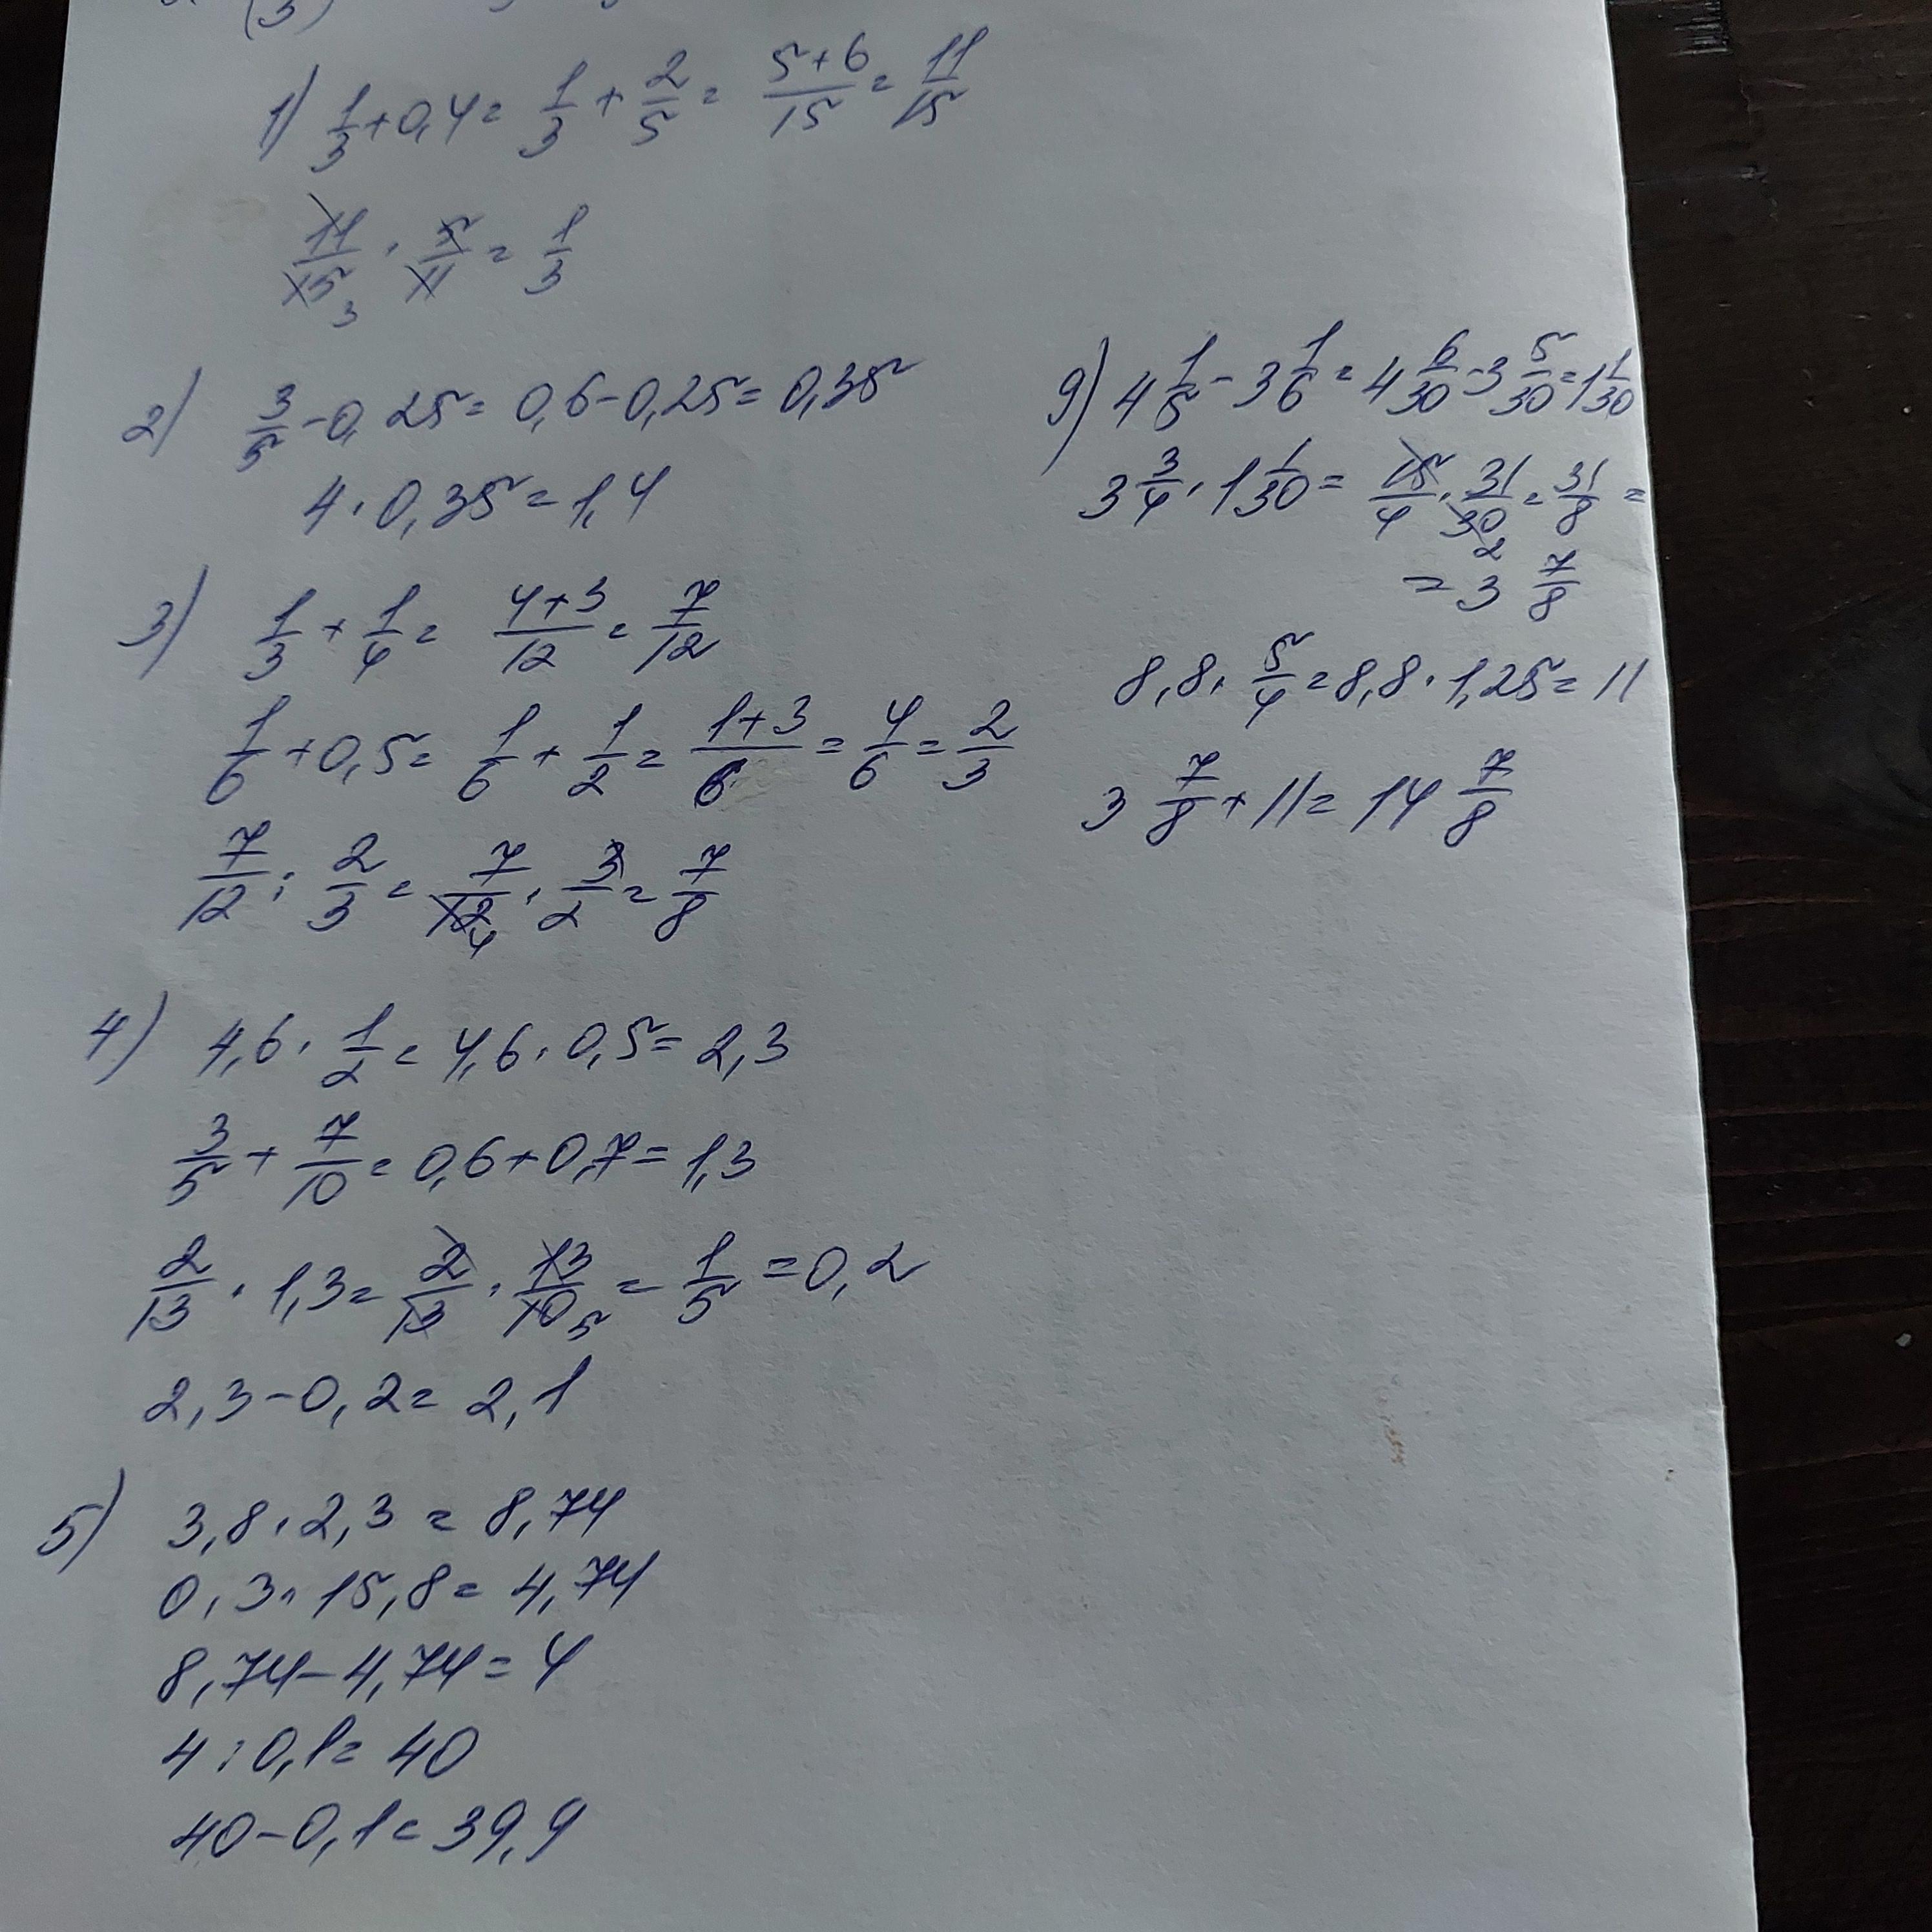 (3)
1) 1/3 + 0,4 = 1/3 + 2/5 = (5+6)/15 = 11/15
11/15 3 · 5/11 = 1/3
2) 3/5 - 0,25 = 0,6 - 0,25 = 0,35
4 · 0,35 = 1,4
3) 1/3 + 1/4 = (4+3)/12 = 7/12
1/6 + 0,5 = 1/6 + 1/2 = (1+3)/6 = 4/6 = 2/3
7/12 : 2/3 = 7/12 4 · 3/2 = 7/8
4) 4,6 · 1/2 = 4,6 · 0,5 = 2,3
3/5 + 7/10 = 0,6 + 0,7 = 1,3
2/13 · 1,3 = 2/13 · 13/10 5 = 1/5 = 0,2
2,3 - 0,2 = 2,1
5) 3,8 · 2,3 = 8,74
0,3 · 15,8 = 4,74
8,74 - 4,74 = 4
4 : 0,1 = 40
40 - 0,1 = 39,9
9) 4 1/5 - 3 1/6 = 4 6/30 - 3 5/30 = 1 1/30
3 3/4 · 1 1/30 = 15/4 · 31/30 2 = 31/8 =
= 3 7/8
8,8 · 5/4 = 8,8 · 1,25 = 11
3 7/8 + 11 = 14 7/8